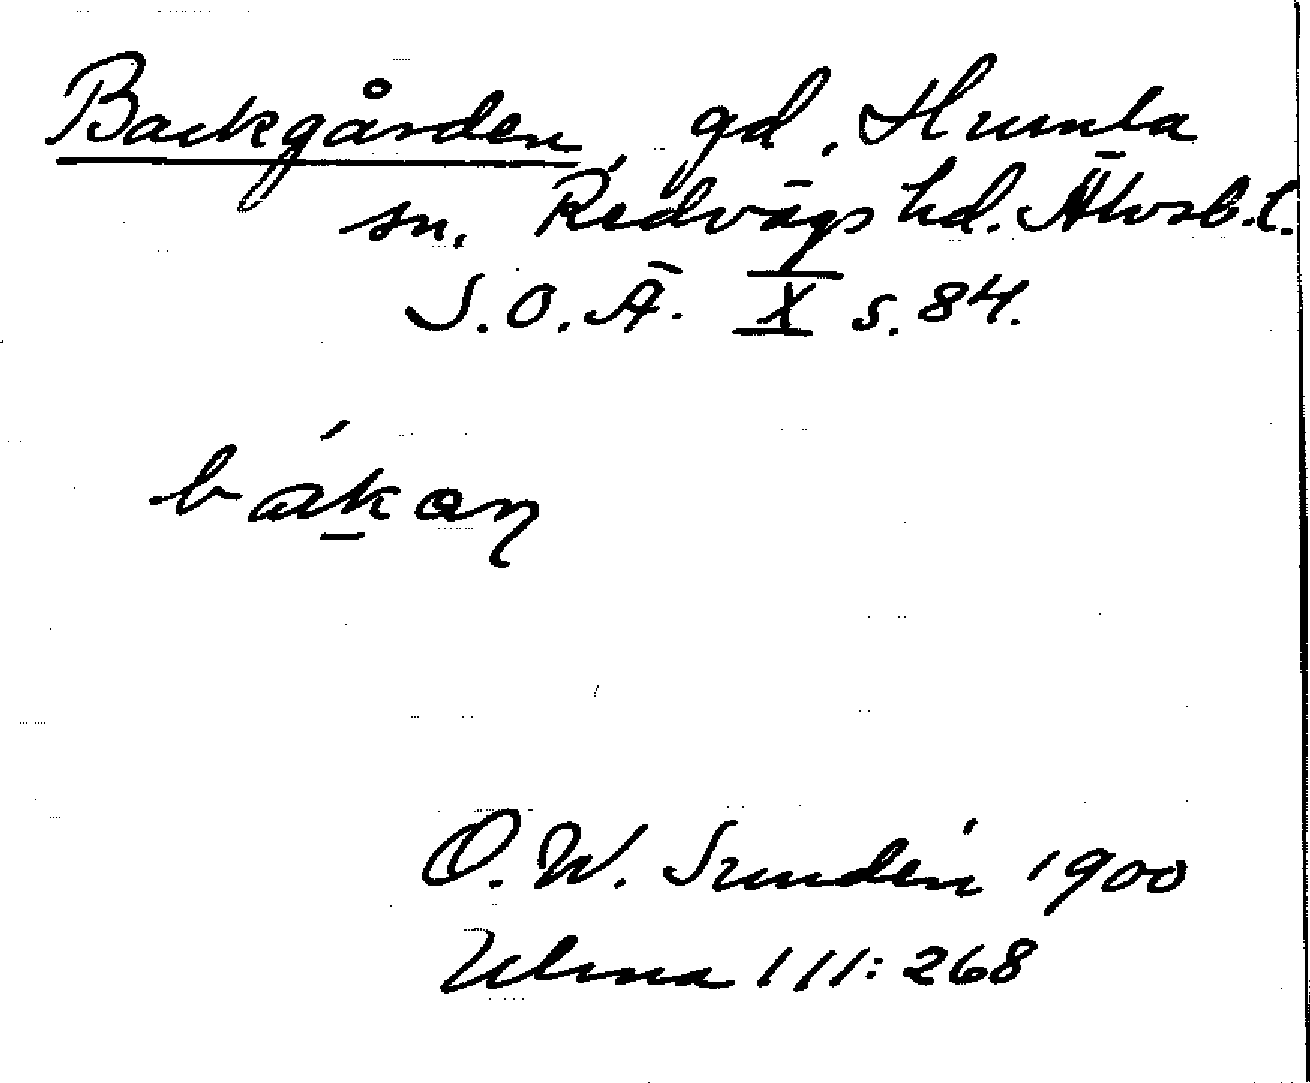 Backgården, gd, Humla
sn. Redvägs hd. Älvsb. l.
S.O.Ä. X s. 84.
O. W. Sundén 1900
Ulma 111:268